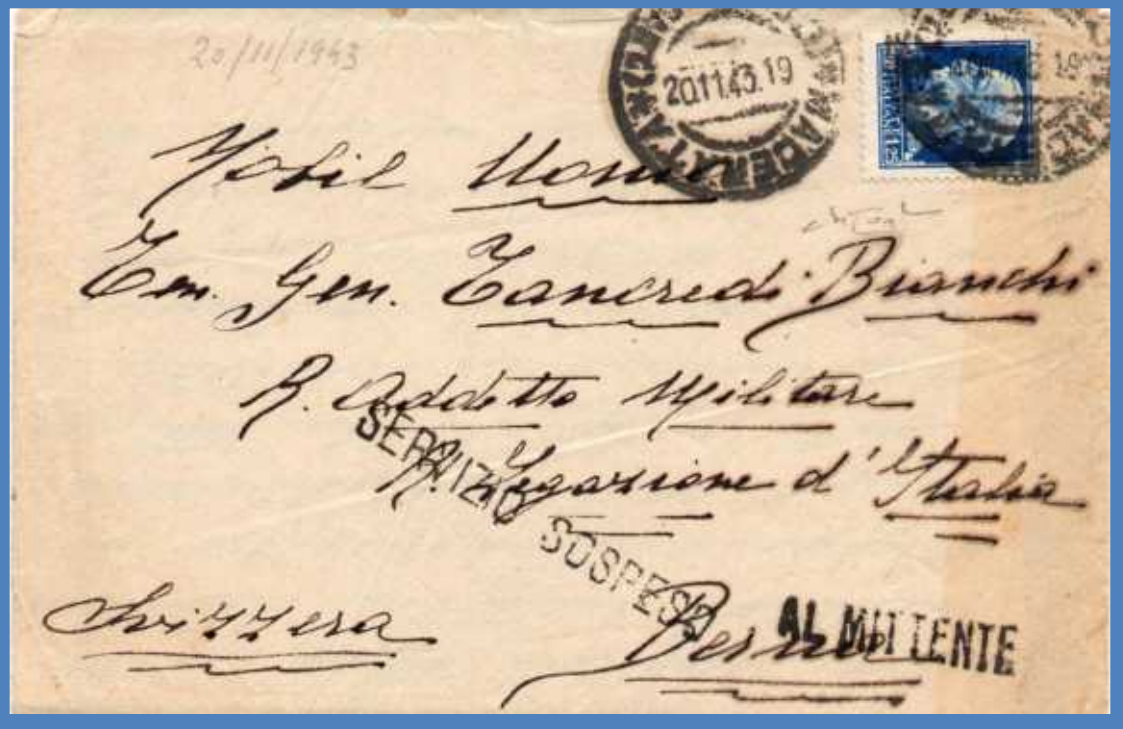 20/11/1943
20.11.43.19
MACERATA
1,25
Nobil Uomo
Ten. Gen. Tancredi Bianchi
R. Addetto Militare
R. Legazione d'Italia
SERVIZIO SOSPESO
Svizzera
Berna
AL MITTENTE